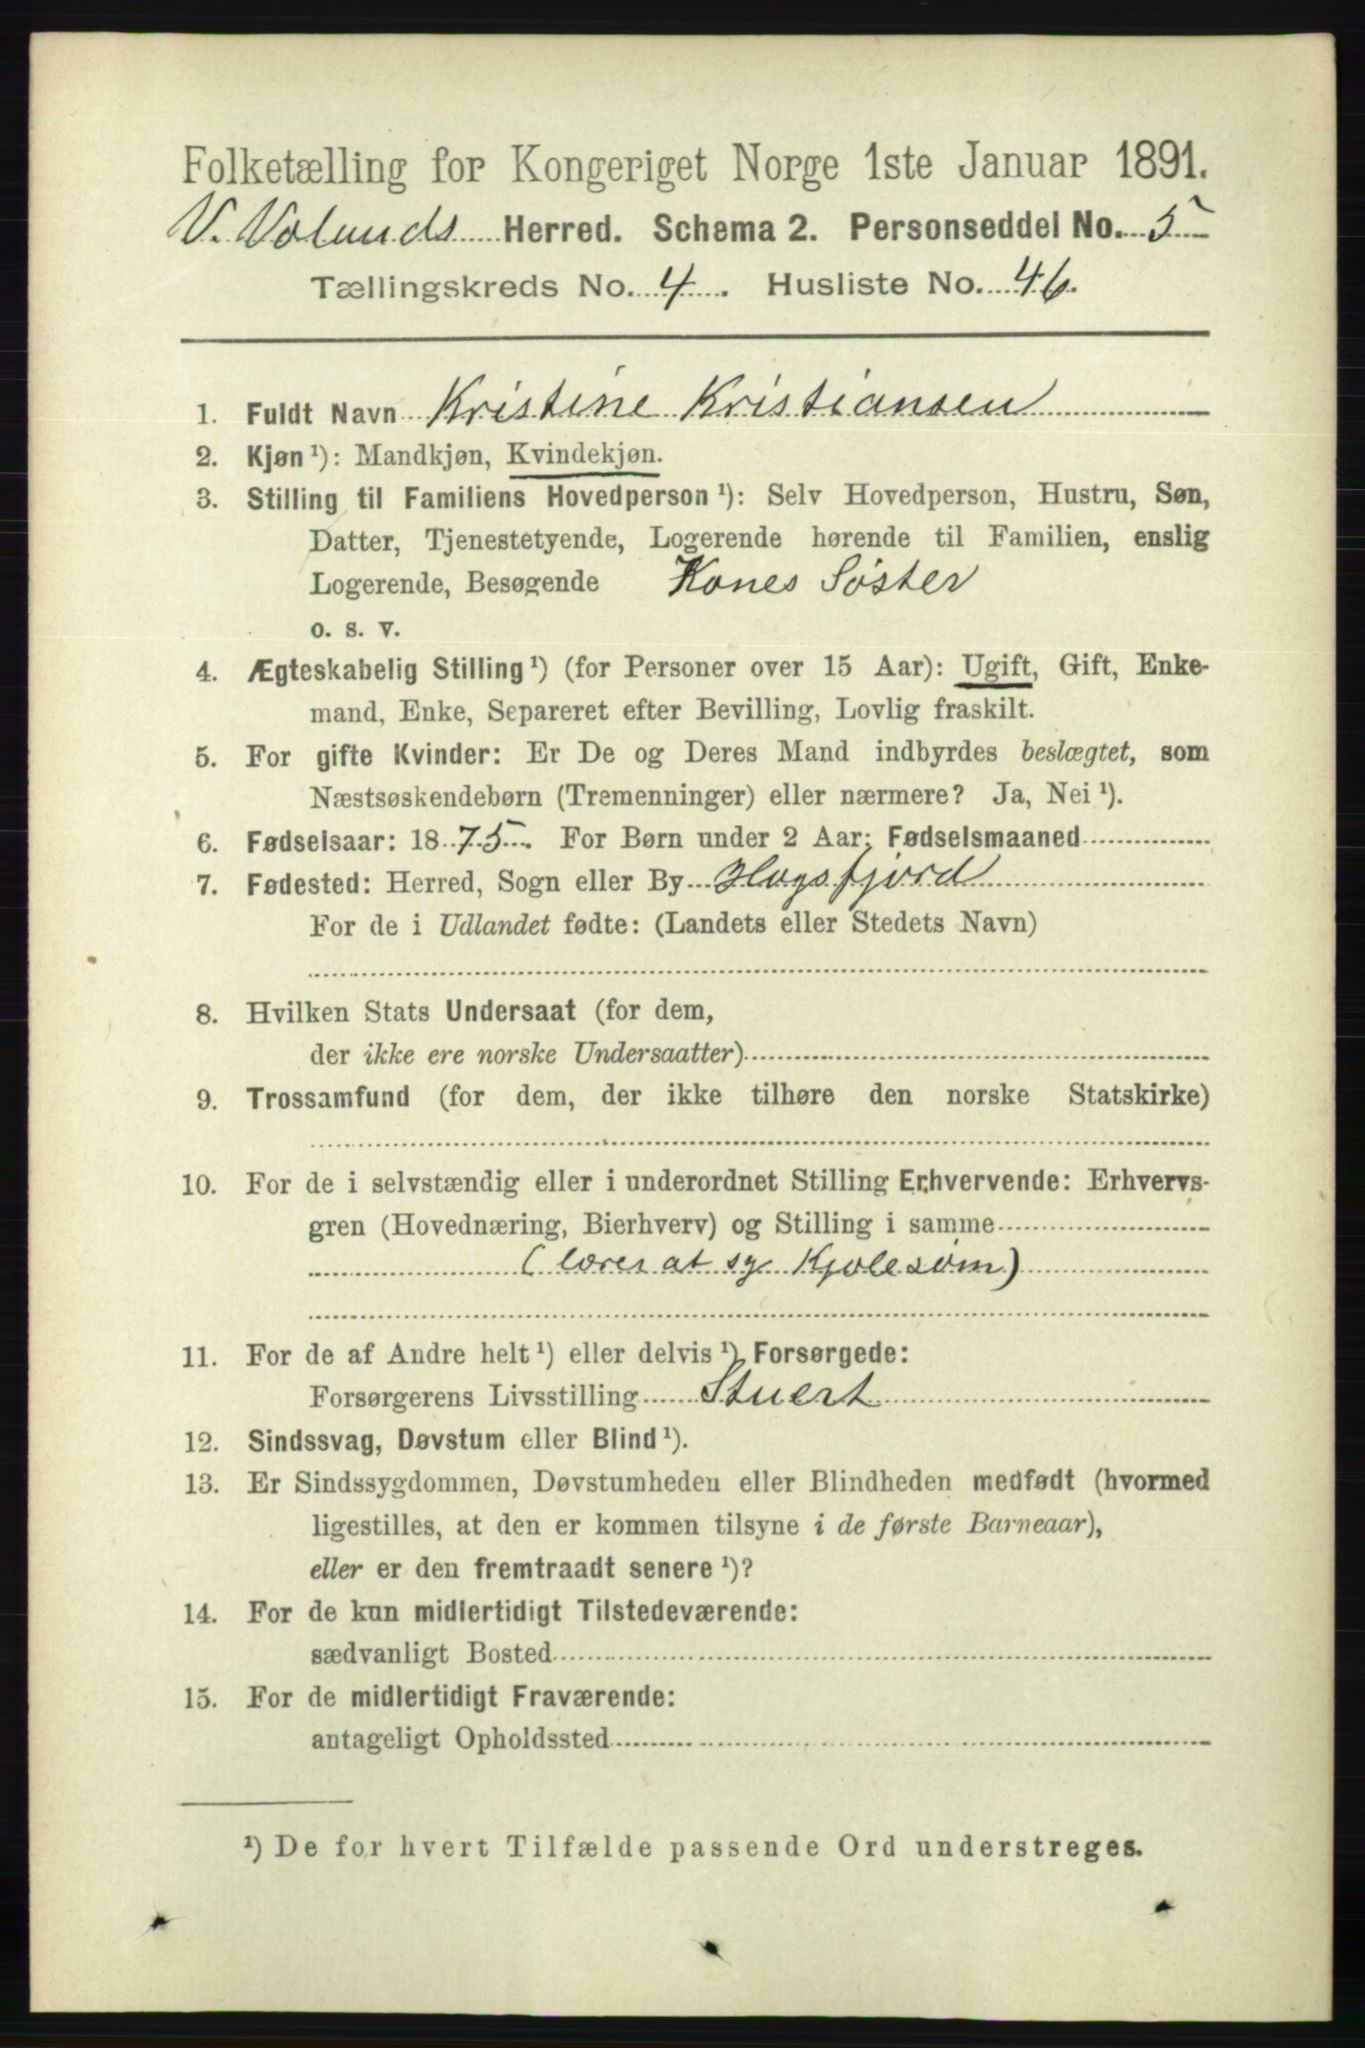 Folketælling for Kongeriget Norge 1ste Januar 1891.
V. Molands Herred. Schema 2. Personseddel No. 5
Tællingskreds No. 4. Husliste No. 46.
1. Fuldt Navn Kristine Kristiansen
2. Kjøn¹): Mandkjøn, Kvindekjøn.
3. Stilling til Familiens Hovedperson¹): Selv Hovedperson, Hustru, Søn,
Datter, Tjenestetyende, Logerende hørende til Familien, enslig
Logerende, Besøgende Kones Søster
o. s. v.
4. Ægteskabelig Stilling¹) (for Personer over 15 Aar): Ugift, Gift, Enke-
mand, Enke, Separeret efter Bevilling, Lovlig fraskilt.
5. For gifte Kvinder: Er De og Deres Mand indbyrdes beslægtet, som
Næstsøskendebørn (Tremenninger) eller nærmere? Ja, Nei¹).
6. Fødselsaar: 1875. For Børn under 2 Aar: Fødselsmaaned
7. Fødested: Herred, Sogn eller By Høgsfjord
For de i Udlandet fødte: (Landets eller Stedets Navn)
8. Hvilken Stats Undersaat (for dem,
der ikke ere norske Undersaatter)
9. Trossamfund (for dem, der ikke tilhøre den norske Statskirke)
10. For de i selvstændig eller i underordnet Stilling Erhvervende: Erhvervs-
gren (Hovednæring, Bierhverv) og Stilling i samme
(lærer at sy Kjolesøm)
11. For de af Andre helt¹) eller delvis¹) Forsørgede:
Forsørgerens Livsstilling Stuert
12. Sindssvag, Døvstum eller Blind¹).
13. Er Sindssygdommen, Døvstumheden eller Blindheden medfødt (hvormed
ligestilles, at den er kommen tilsyne i de første Barneaar),
eller er den fremtraadt senere¹)?
14. For de kun midlertidigt Tilstedeværende:
sædvanligt Bosted
15. For de midlertidigt Fraværende:
antageligt Opholdssted
¹) De for hvert Tilfælde passende Ord understreges.